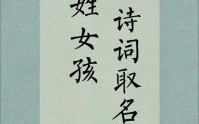 诗词取名
姓女孩